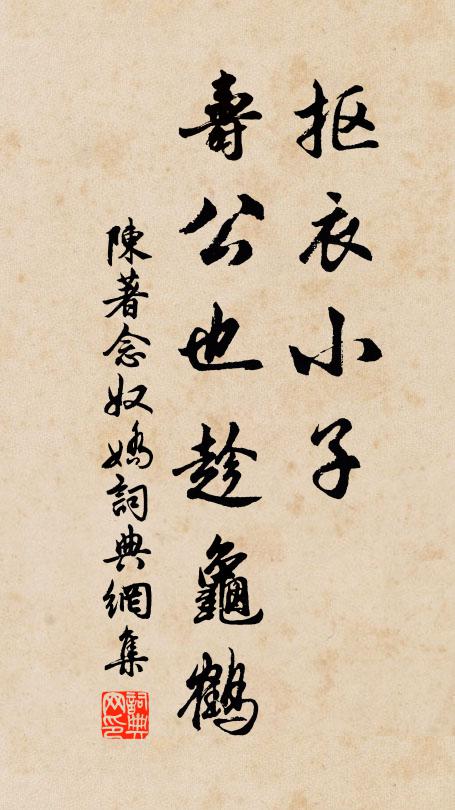 抠衣小子
壽公也趁龜鶴
陳著念奴嬌詞典網集
詞典网印